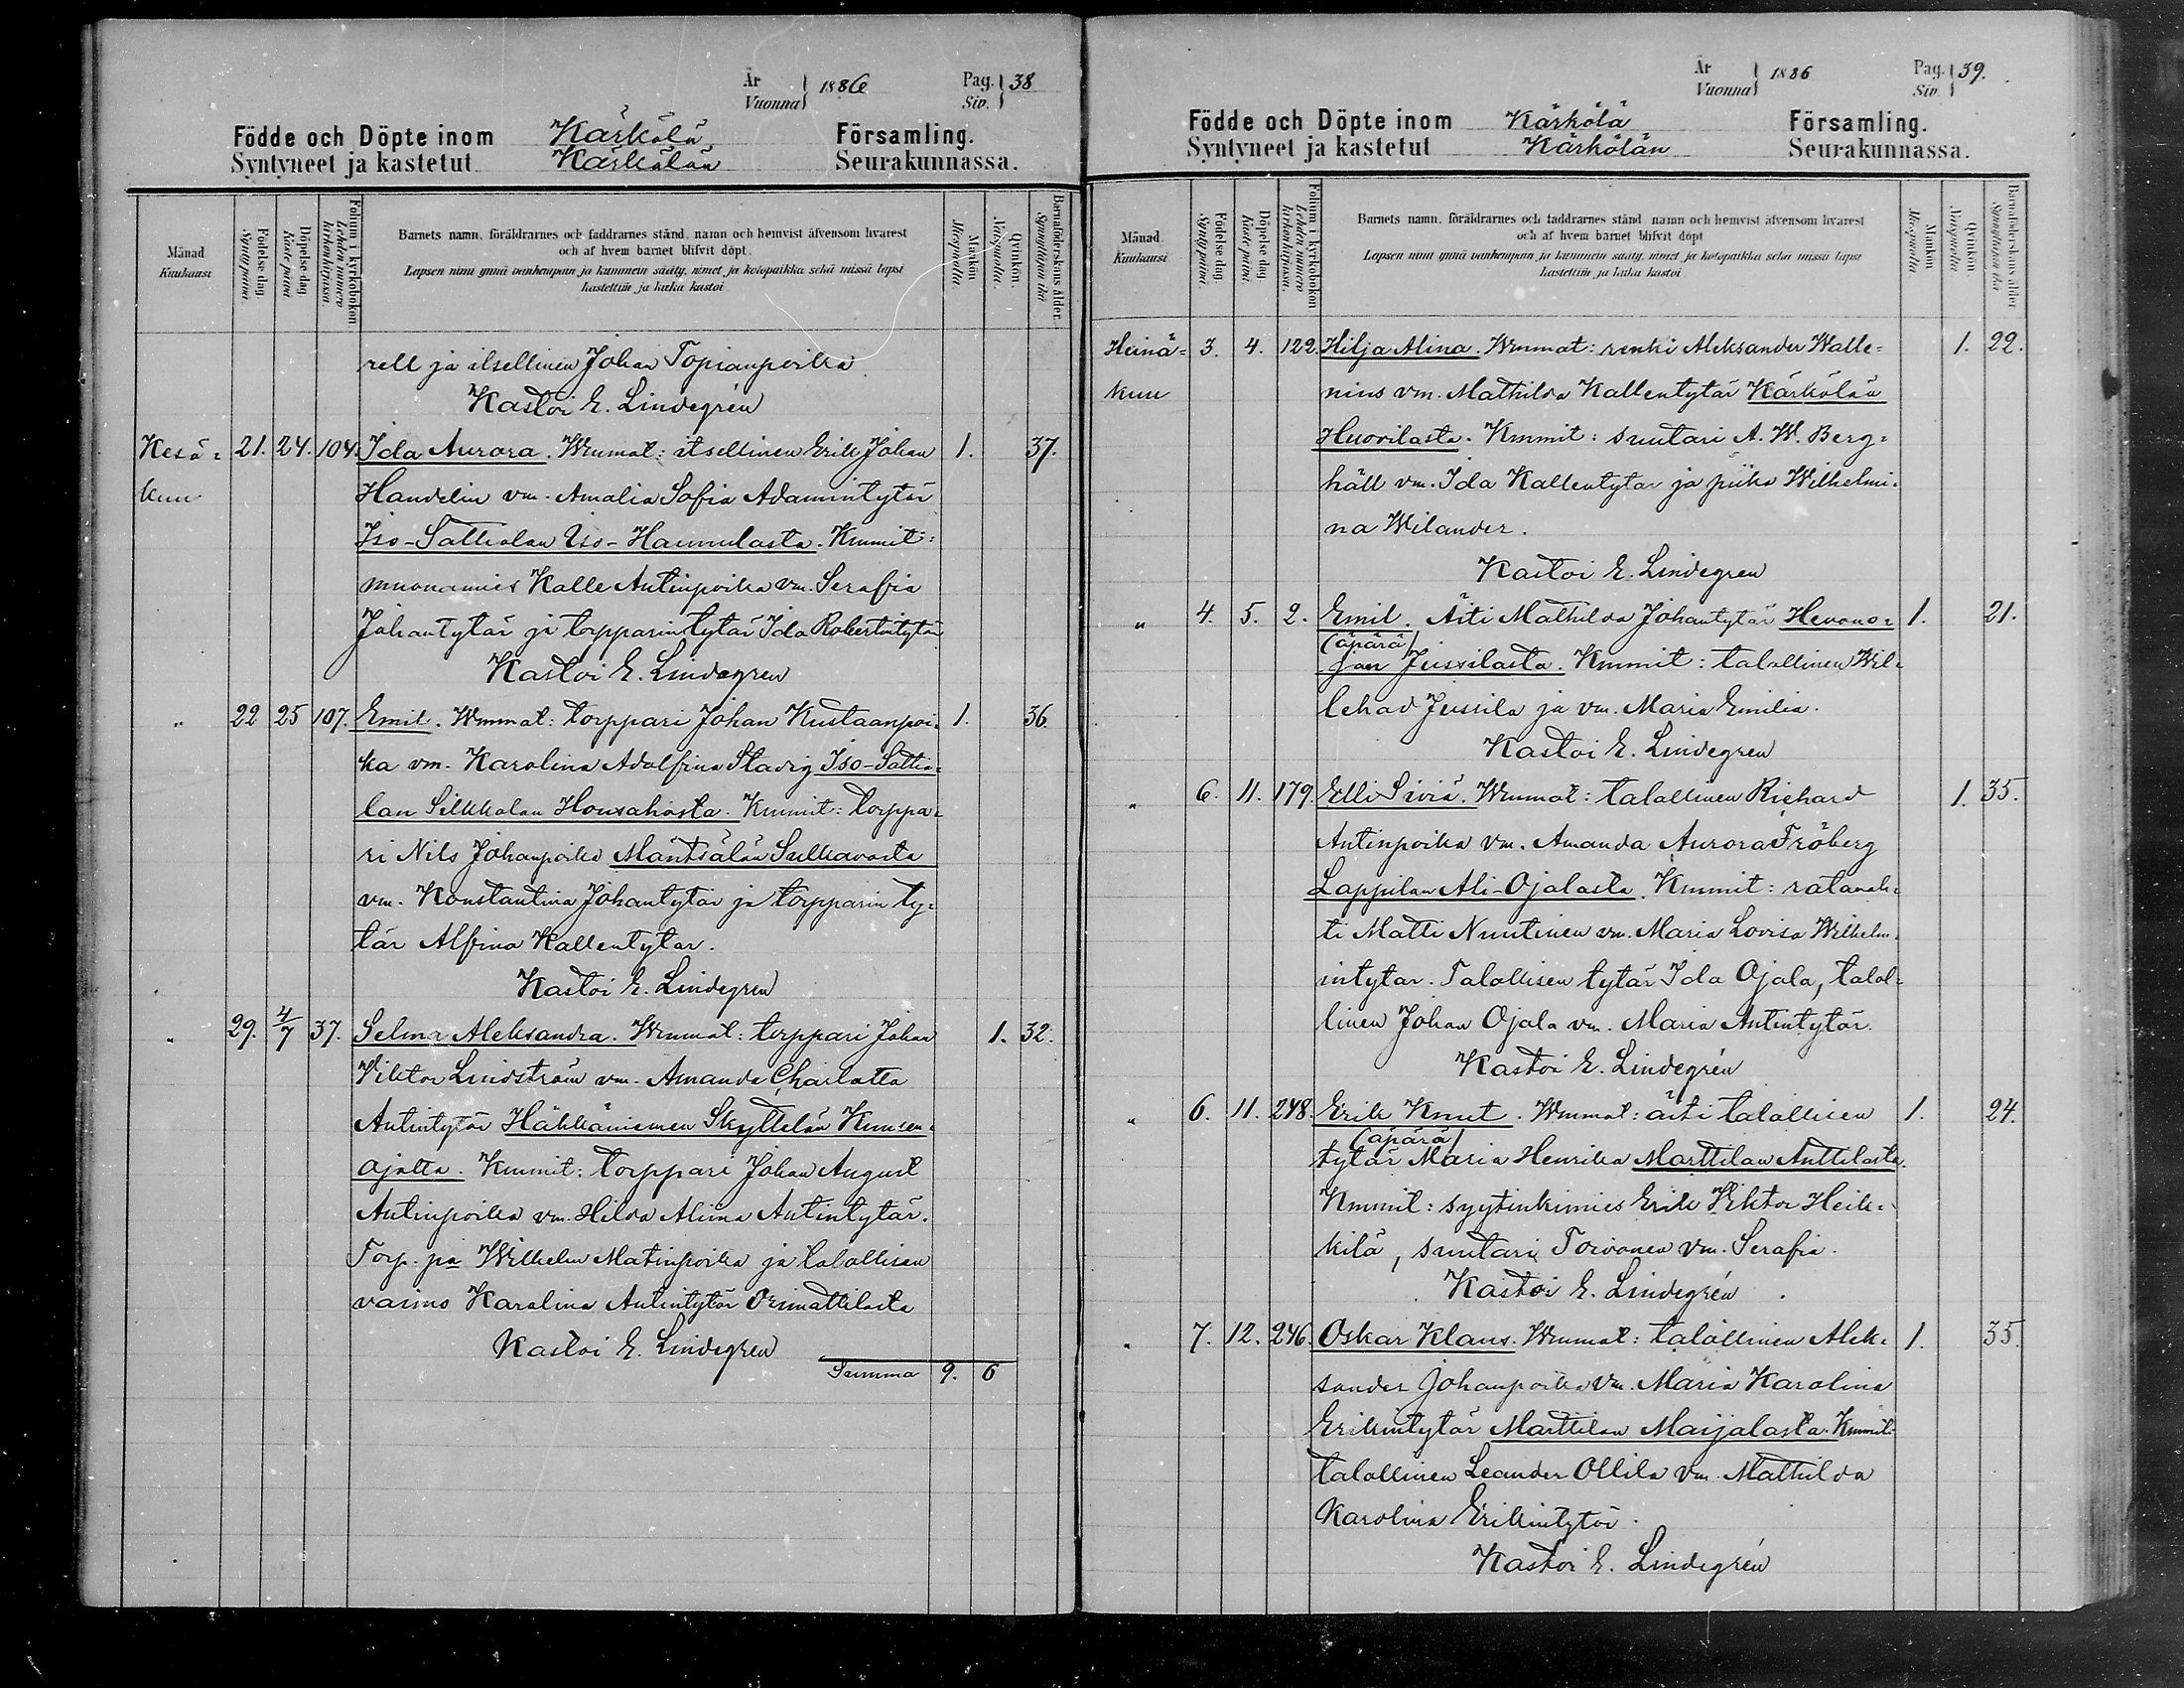 År
Vuonna } 1886 Pag.
Siv. } 38
Födde och Döpte inom Kärkölä Församling.
Syntyneet ja kastetut Kärkölän Seurakunnassa.
Månad
Kuukausi
Födelse dag.
Syntypäivä.
Döpelse dag.
Kastepäivä
Folium i kyrkobokon
Lehden numero kirkonkirjassa.
Barnets namn, föräldrarnes och faddrarnes stånd, namn och hemvist äfvensom hvarest
och af hvem barnet blifvit döpt.
Lapsen nimi ynnä vanhempain ja kummein sääty, nimet ja kotopaikka sekä missä lapsi
kastettiin ja kuka kastoi
Mankön
Miespuolia.
Qvinkön.
Vaispuolia.
Barnaföderskans ålder.
Synnyttäjän ikä
rell ja itsellinen Johan Topianpoika
Kastoi E. Lindegrén
Kesä= 21. 24. 104. Ida Aurora. Wmmat: itsellinen Erik Johan 1. 37.
kuu Handelin vm. Amalia Sofia Adamintytär
Iso-Sattialan Iso-Hannulasta. Kmmit:
muonamies Kalle Antinpoika vm. Serafia
Johantytär ja torpparintytär Ida Robertintytär
Kastoi E. Lindegren
" 22 25 107. Emil. Wmmat: torppari Johan Kustaanpoi= 1. 36.
ka vm. Karolina Adolfina Stavig Iso-Sattia=
lan Silkkalan Honsahosta. Kmmit: torppa=
ri Nils Johanpoika Mäntsälän Sulkavasta
vm. Konstantina Johantytär ja torpparin ty=
tär Alfina Kallentytar.
Kastoi E. Lindegren
" 29. 4/7 37. Selma Aleksandra. Wmmat: torppari Johan 1. 32.
Viktor Lindström vm. Amanda Charlotta
Antintytär Hähkäniemen Skyttelän Kuusen=
ojalta. Kmmit: torppari Johan August
Antinpoika vm. Hilda Alina Antintytär.
Torp. pa Wilhelm Matinpoika ja talollisen
vaimo Karolina Antintytär Orimattilasta
Kastoi E. Lindegren
Summa 9. 6
År
Vuonna } 1886 Pag.
Siv. } 39.
Födde och Döpte inom Kärkölä Församling.
Syntyneet ja kastetut Kärkölän Seurakunnassa.
Månad
Kuukausi
Födelse dag.
Syntypäivä.
Döpelse dag.
Kastepäivä
Folium i kyrkobokon
Lehden numero kirkonkirjassa.
Barnets namn, föräldrarnes och faddrarnes stånd, namn och hemvist äfvensom hvarest
och af hvem barnet blifvit döpt
Lapsen nimi ynnä vanhempain ja kummein sääty, nimet ja kotopaikka sekä missä lapsi
kastettiin ja kuka kastoi
Mankön
Miespuolia.
Qvinkön
Vaispuolia.
Barnaföderskans ålder
Synnyttäjän ikä
Heinä= 3. 4. 122. Hilja Alina. Wmmat: renki Aleksander Walle= 1. 22.
kuu nius vm. Mathilda Kallentytär Kärkölän
Huovilasta. Kmmit: suutari A. W. Berg=
häll vm. Ida Kallentytar ja piika Wilhelmi=
na Wilander.
Kastoi E. Lindegren
" 4. 5. 2. Emil. Äiti Mathilda Johantytär Hevono= 1. 21.
(äpärä)
jan Jussilasta. Kmmit: talollinen Wil=
lehad Jussila ja vm. Maria Emilia.
Kastoi E. Lindegren
" 6. 11. 179. Elli Siviä. Wmmat: talollinen Richard 1. 35.
Antinpoika vm. Amanda Aurora Fröberg
Lappilan Ali-Ojalasta. Kmmit: ratavah=
ti Matti Nuutinen vm. Maria Lovisa Wilhelm=
intytar. Talollisen tytär Ida Ojala, talol=
linen Johan Ojala vm. Maria Antintytär.
Kastoi E. Lindegrén
" 6. 11. 248. Erik Knut. Wmmat: äiti talollisen 1. 24.
(äpärä)
tytär Maria Henrika Marttilan Anttilasta.
Kmmit: syytinkimies Erik Viktor Heik=
kilä, suutari Toivonen vm. Serafia.
Kastoi E. Lindegrén
" 7. 12. 246. Oskar Klaus. Wmmat: talollinen Alek= 1. 35.
sander Johanpoika vm. Maria Karolina
Erikintytär Marttilan Maijalasta. Kmmit:
talollinen Leander Ollila vm. Mathilda
Karolina Erikintytär.
Kastoi E. Lindegrén